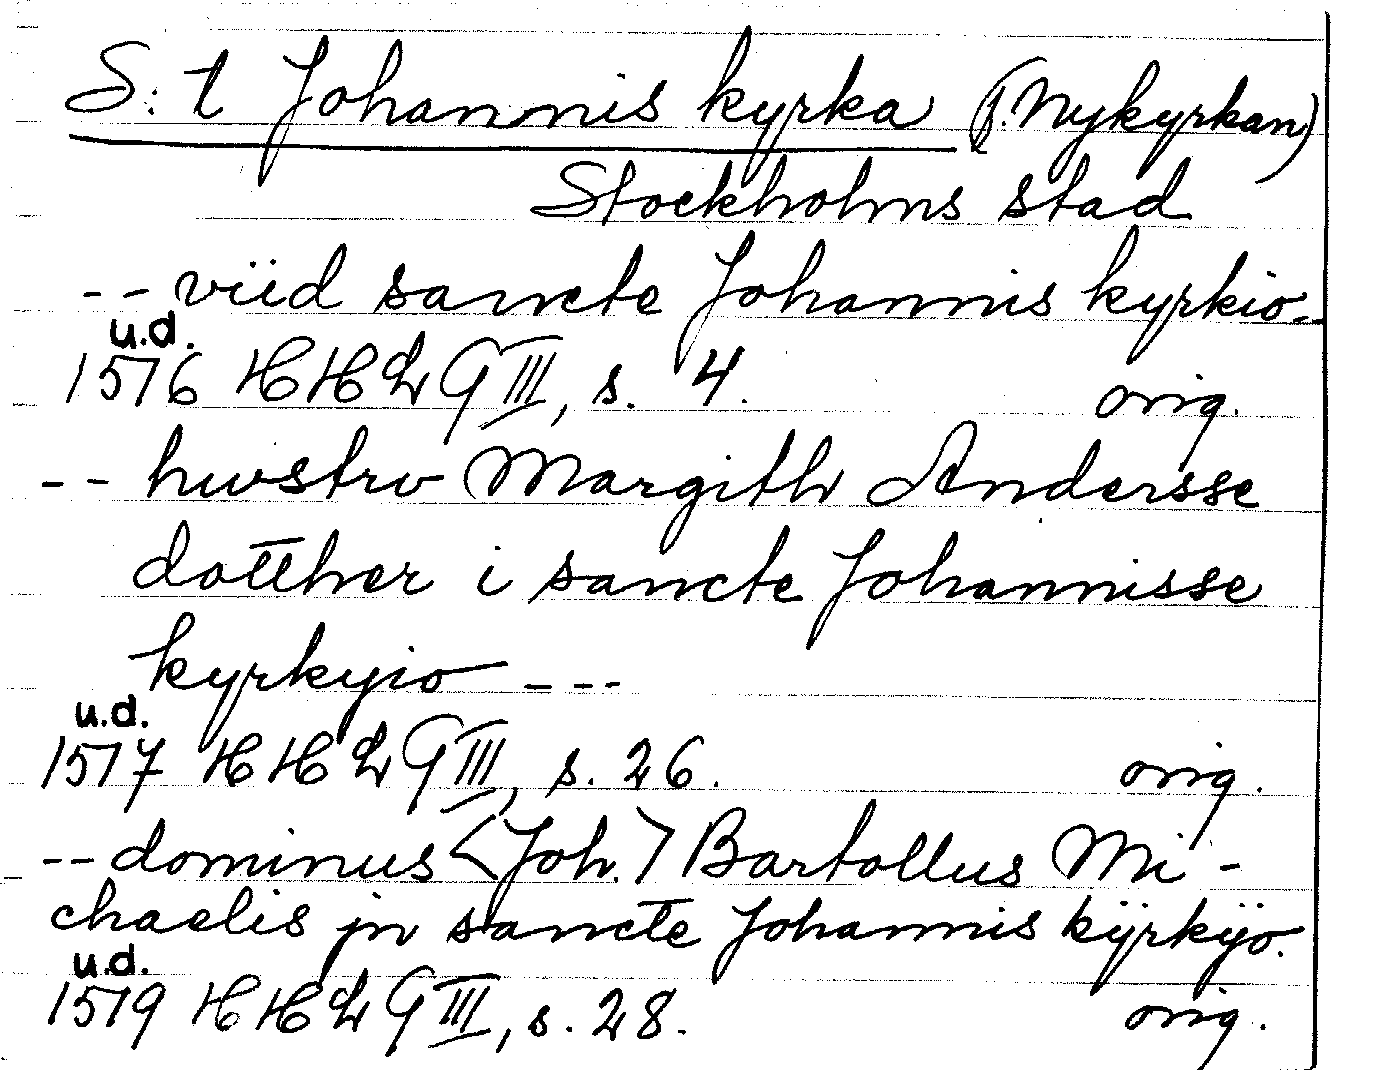 S:t Johannis kyrka (f. Nykyrkan)
Stockholms stad
-- viid sancte Johannis kyrkio--
u.d.
1576 HHLG III, s. 4. orig.
-- hwstrv Margith Andersse
dotther i sancte Johannisse
kyrkyio ---
u.d.
1577 HHLG III, s. 26. orig.
-- dominus <Joh.> Bartollus Mi-
chaelis jn sancte Johannis kÿrkÿo.
u.d.
1579 HHLG III, s. 28. orig.